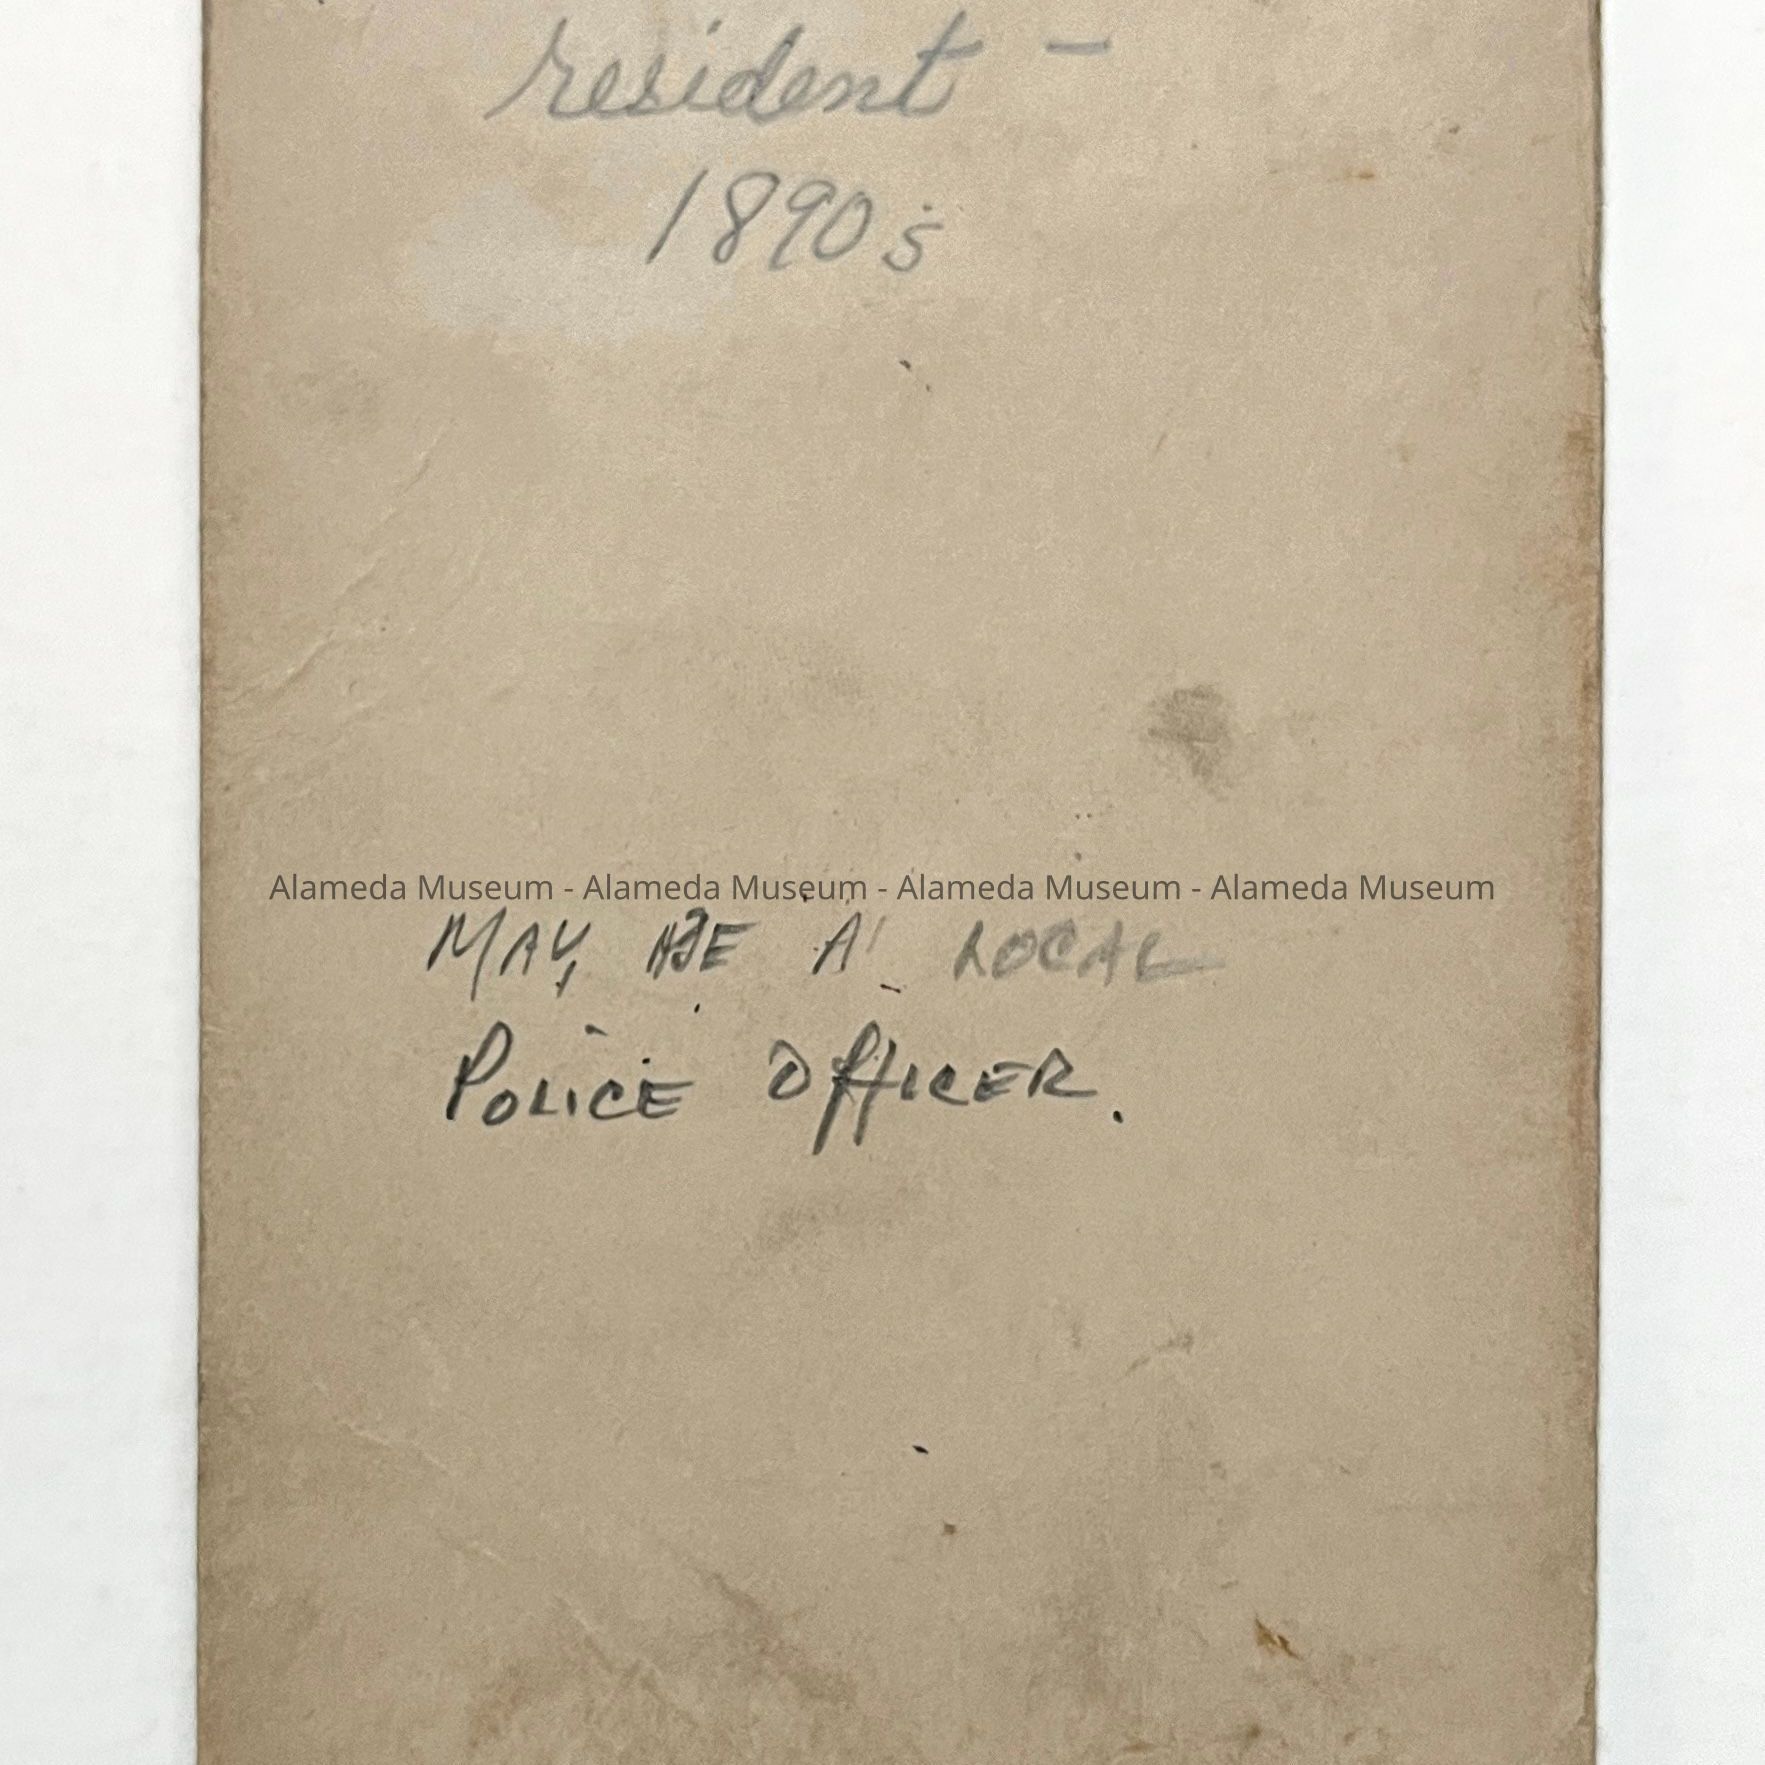 resident –
1890s
Alameda Museum - Alameda Museum - Alameda Museum - Alameda Museum
MAY BE A LOCAL
POLICE OFFICER.